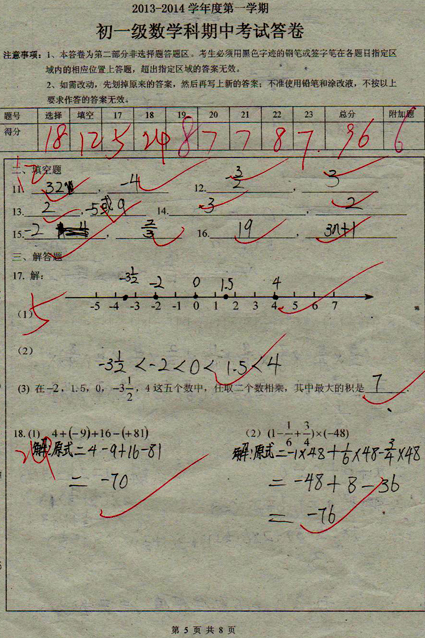 2013-2014学年度第一学期
初一级数学科期中考试答卷
注意事项：1、本答卷为第二部分非选择题答题区。考生必须用黑色字迹的钢笔或签字笔在各题目指定区
域内的相应位置上答题，超出指定区域的答案无效。
2、如需改动，先划掉原来的答案，然后再写上新的答案；不准使用铅笔和涂改液，不按以上
要求作答的答案无效。
题号 选择 填空 17 18 19 20 21 22 23 总分 附加题
得分 18 12 5 24 8 7 7 8 7 96 6
二、填空题
11. 32 , -4 12. 3/2 , 3
13. 2 , -5或9 14. -3 , 2
15. -2 , 2/3 16. 19 , 3n+1
三、解答题
17. 解：
-3 1/2 -2 0 1.5 4
-5 -4 -3 -2 -1 0 1 2 3 4 5 6 7
(1)
(2)
-3 1/2 < -2 < 0 < 1.5 < 4
(3) 在-2，1.5，0，-3 1/2，4这五个数中，任取二个数相乘，其中最大的积是 7
18.(1) 4+(-9)+16-(+81) (2) (1-1/6+3/4)×(-48)
解:原式=4-9+16-81 解:原式=-1×48+1/6×48-3/4×48
= -70 = -48+8-36
= -76
第 5 页 共 8 页